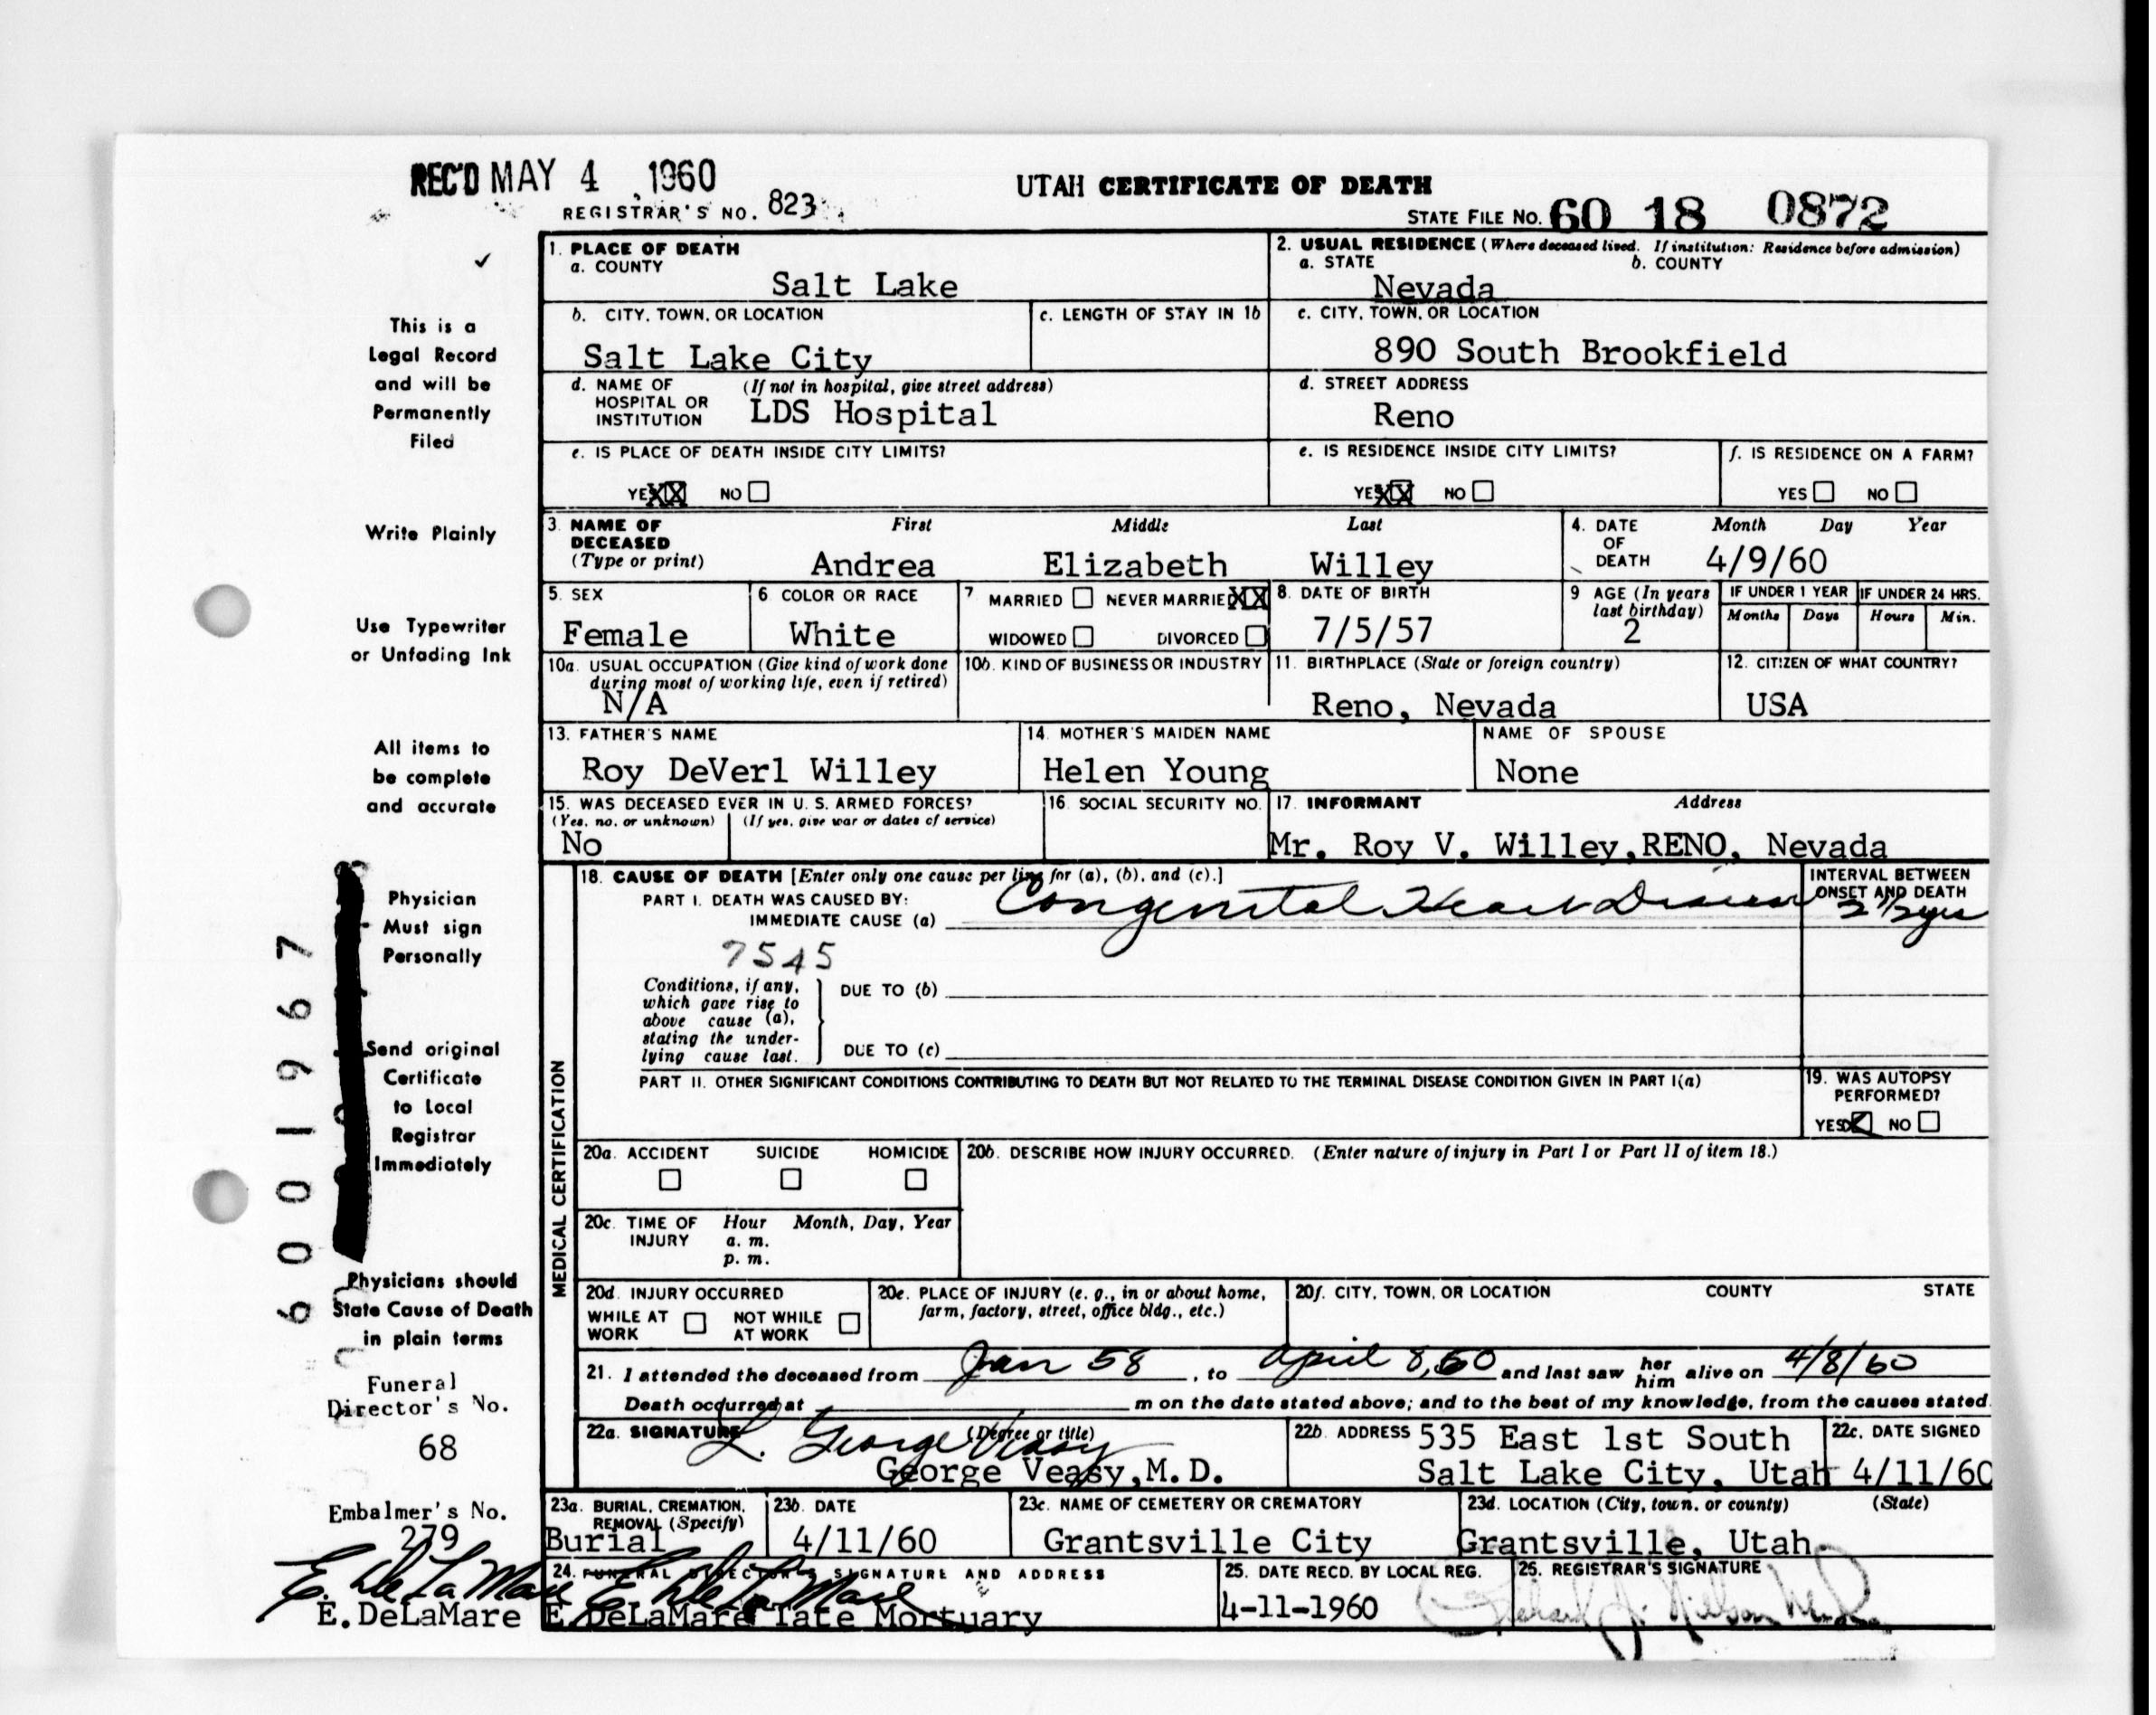 REC'D MAY 4 1960
REGISTRAR'S NO. 823
UTAH CERTIFICATE OF DEATH
STATE FILE NO. 60 18 0872
1. PLACE OF DEATH
a. COUNTY
Salt Lake
2. USUAL RESIDENCE (Where deceased lived. If institution: Residence before admission)
a. STATE b. COUNTY
Nevada
b. CITY, TOWN, OR LOCATION
Salt Lake City
c. LENGTH OF STAY IN 1b
c. CITY, TOWN, OR LOCATION
890 South Brookfield
d. NAME OF HOSPITAL OR INSTITUTION (If not in hospital, give street address)
LDS Hospital
d. STREET ADDRESS
Reno
e. IS PLACE OF DEATH INSIDE CITY LIMITS?
YES XX NO
e. IS RESIDENCE INSIDE CITY LIMITS?
YES XX NO
f. IS RESIDENCE ON A FARM?
YES NO
3. NAME OF DECEASED (Type or print)
First Middle Last
Andrea Elizabeth Willey
4. DATE OF DEATH Month Day Year
4/9/60
5. SEX
Female
6 COLOR OR RACE
White
7 MARRIED NEVER MARRIED XX
WIDOWED DIVORCED
8. DATE OF BIRTH
7/5/57
9 AGE (In years last birthday)
2
IF UNDER 1 YEAR IF UNDER 24 HRS.
Months Days Hours Min.
10a. USUAL OCCUPATION (Give kind of work done during most of working life, even if retired)
N/A
10b. KIND OF BUSINESS OR INDUSTRY
11. BIRTHPLACE (State or foreign country)
Reno, Nevada
12. CITIZEN OF WHAT COUNTRY?
USA
13. FATHER'S NAME
Roy DeVerl Willey
14. MOTHER'S MAIDEN NAME
Helen Young
NAME OF SPOUSE
None
15. WAS DECEASED EVER IN U. S. ARMED FORCES?
(Yes, no. or unknown) (If yes, give war or dates of service)
No
16. SOCIAL SECURITY NO.
17. INFORMANT Address
Mr. Roy V. Willey, RENO, Nevada
MEDICAL CERTIFICATION
18. CAUSE OF DEATH [Enter only one cause per line for (a), (b), and (c).]
PART I. DEATH WAS CAUSED BY:
IMMEDIATE CAUSE (a) Congenital Heart Disease
7545
INTERVAL BETWEEN ONSET AND DEATH
2 1/2 yrs
Conditions, if any, which gave rise to above cause (a), stating the underlying cause last.
DUE TO (b)
DUE TO (c)
PART II. OTHER SIGNIFICANT CONDITIONS CONTRIBUTING TO DEATH BUT NOT RELATED TO THE TERMINAL DISEASE CONDITION GIVEN IN PART I(a)
19. WAS AUTOPSY PERFORMED?
YES NO
20a. ACCIDENT SUICIDE HOMICIDE
20b. DESCRIBE HOW INJURY OCCURRED. (Enter nature of injury in Part I or Part II of item 18.)
20c. TIME OF INJURY Hour Month, Day, Year
a. m.
p. m.
20d. INJURY OCCURRED
WHILE AT WORK NOT WHILE AT WORK
20e. PLACE OF INJURY (e. g., in or about home, farm, factory, street, office bldg., etc.)
20f. CITY, TOWN, OR LOCATION COUNTY STATE
21. I attended the deceased from Jan 58, to April 8, 60 and last saw her him alive on 4/8/60
Death occurred at m on the date stated above; and to the best of my knowledge, from the causes stated.
22a. SIGNATURE (Degree or title)
L. George Veasy
George Veasy, M.D.
22b. ADDRESS 535 East 1st South
Salt Lake City, Utah
22c. DATE SIGNED
4/11/60
23a. BURIAL, CREMATION, REMOVAL (Specify)
Burial
23b. DATE
4/11/60
23c. NAME OF CEMETERY OR CREMATORY
Grantsville City
23d. LOCATION (City, town. or county) (State)
Grantsville, Utah.
24. FUNERAL DIRECTOR'S SIGNATURE AND ADDRESS
E. DeLaMare
E. DeLaMare Tate Mortuary
25. DATE RECD. BY LOCAL REG.
4-11-1960
25. REGISTRAR'S SIGNATURE
This is a
Legal Record
and will be
Permanently
Filed
Write Plainly
Use Typewriter
or Unfading Ink
All items to
be complete
and accurate
Physician
Must sign
Personally
Send original
Certificate
to Local
Registrar
Immediately
Physicians should
State Cause of Death
in plain terms
Funeral
Director's No.
68
Embalmer's No.
279
E. DeLaMare
E. DeLaMare
6001967